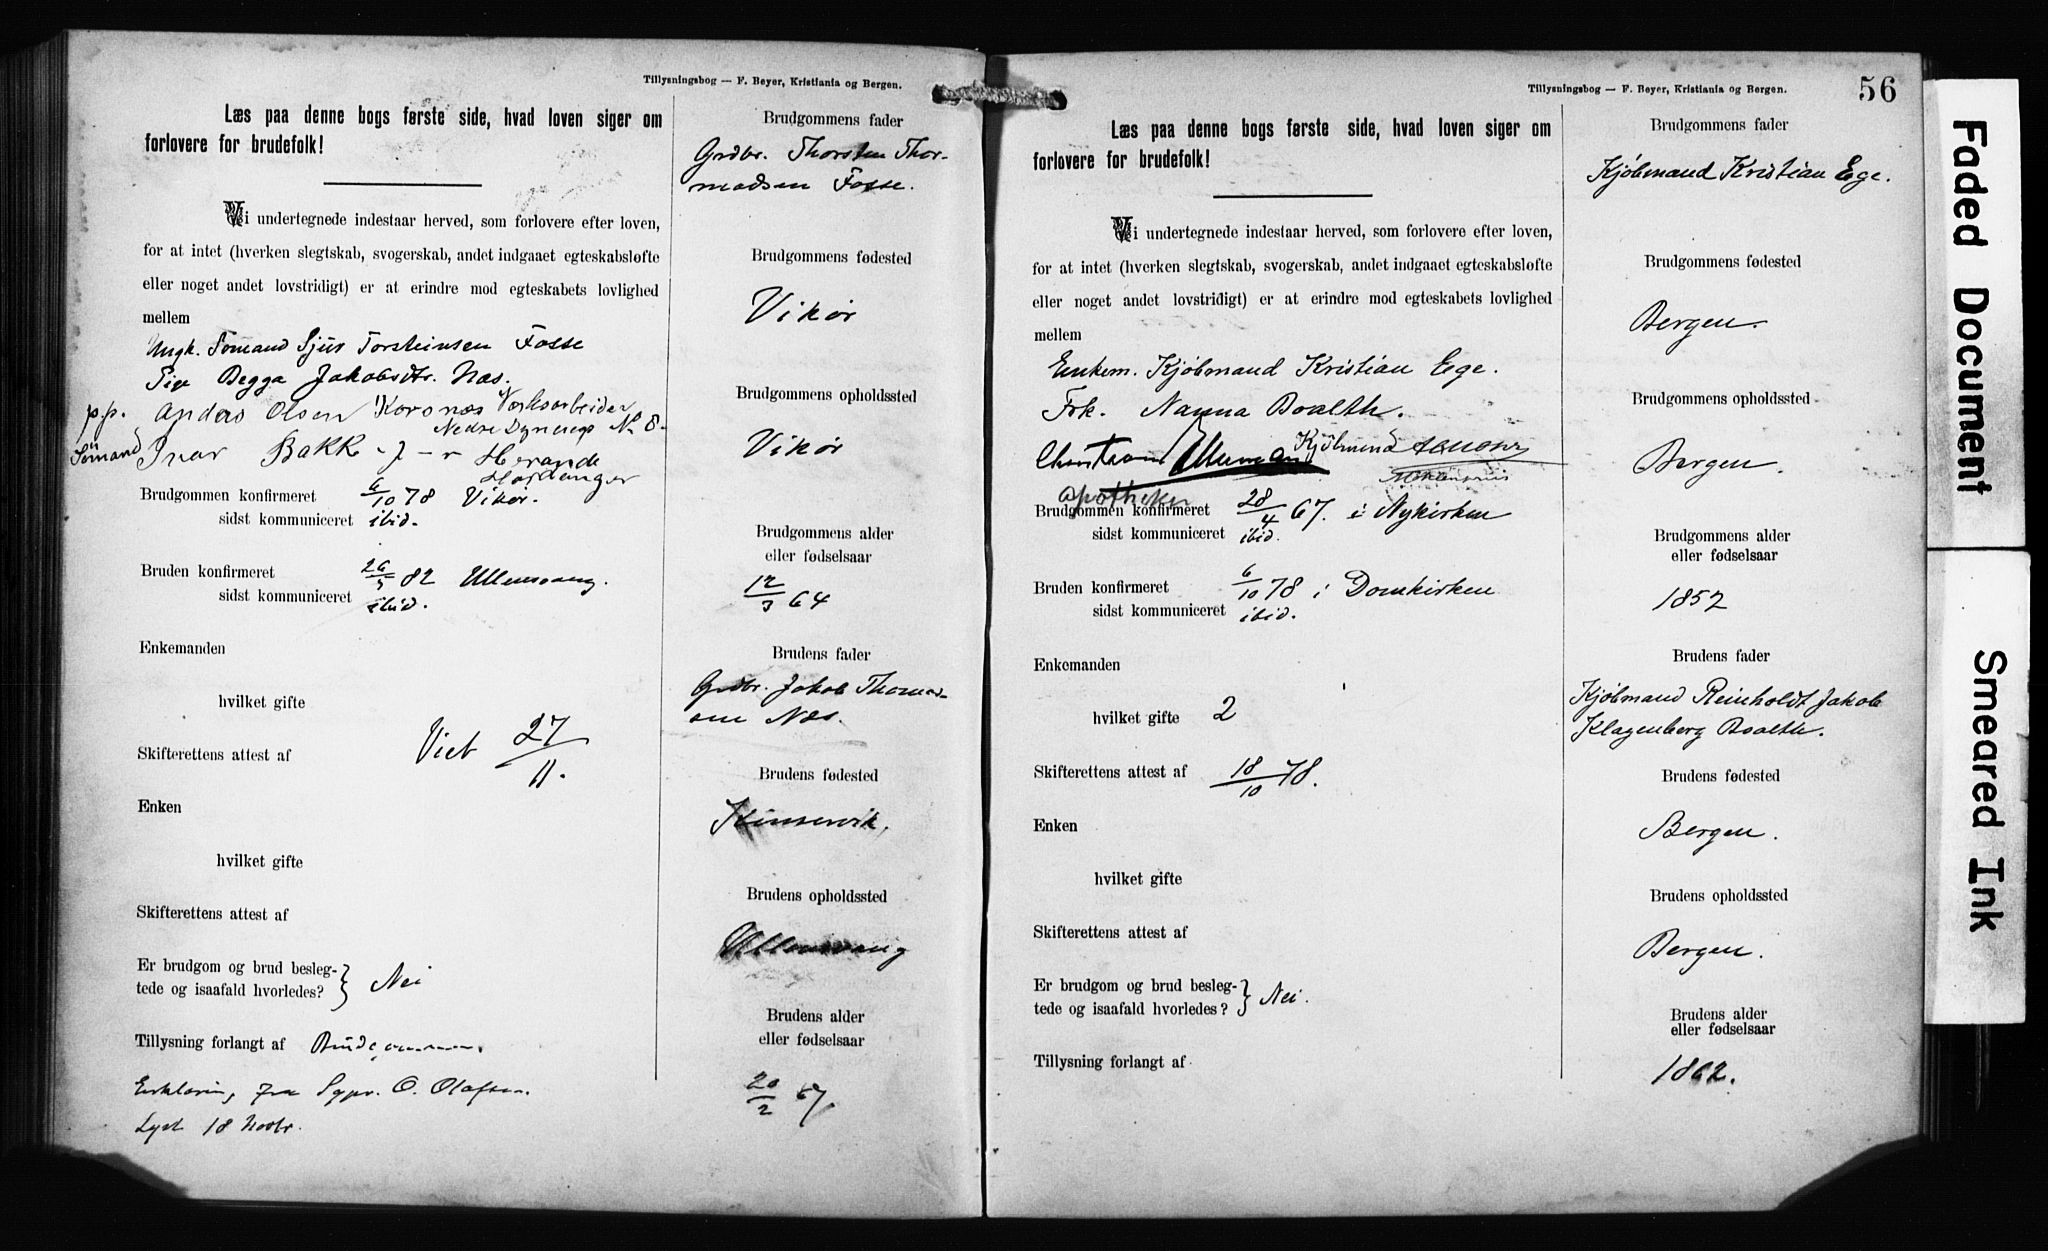 Tillysningsbog — F. Beyer, Kristiania og Bergen.
Læs paa denne bogs første side, hvad loven siger om
forlovere for brudefolk!
Vi undertegnede indestaar herved, som forlovere efter loven,
for at intet (hverken slegtskab, svogerskab, andet indgaaet egteskabsløfte
eller noget andet lovstridigt) er at erindre mod egteskabets lovlighed
mellem
Ungk. Sømand Sjur Torsteinsen Fosse
Pige Begga Jakobsdtr. Næs.
p.p. Anders Olsen Korsnæs Verksarbeider
Nedre No 8.
Sømand Ivar Bakk
Herande
Hardanger
Brudgommen konfirmeret 6/10 78 Vikør.
sidst kommuniceret ibid.
Bruden konfirmeret 82 Ullensvang.
sidst kommuniceret ibid.
Enkemanden
hvilket gifte
Viet 27/11.
Skifterettens attest af
Enken
hvilket gifte
Skifterettens attest af
Er brudgom og brud besleg-
tede og isaafald hvorledes? } Nei
Tillysning forlangt af Brudgommen.
Erklæring fra Sgpr. O. Olafsen.
Lyst 18 Novbr.
Brudgommens fader
Grdbr. Thorsten Thor-
modsen Fosse.
Brudgommens fødested
Vikør
Brudgommens opholdssted
Vikør
Brudgommens alder
eller fødselsaar
12/3 64
Brudens fader
Grdbr. Jakob Thomas-
sen Næs.
Brudens fødested
Kinservik.
Brudens opholdssted
Ullensvang
Brudens alder
eller fødselsaar
20/2 67.
Tillysningsbog — F. Beyer, Kristiania og Bergen.
56
Læs paa denne bogs første side, hvad loven siger om
forlovere for brudefolk!
Vi undertegnede indestaar herved, som forlovere efter loven,
for at intet (hverken slegtskab, svogerskab, andet indgaaet egteskabsløfte
eller noget andet lovstridigt) er at erindre mod egteskabets lovlighed
mellem
Enkem. Kjøbmand Kristian Ege.
Frk. Nanna Boalth.
Kjøbmand
Apotheker
Brudgommen konfirmeret 28/4 67. i Nykirken
sidst kommuniceret ibid.
Bruden konfirmeret 6/10 78 i Domkirken
sidst kommuniceret ibid.
Enkemanden
hvilket gifte 2
Skifterettens attest af 18/10 78.
Enken
hvilket gifte
Skifterettens attest af
Er brudgom og brud besleg-
tede og isaafald hvorledes? } Nei.
Tillysning forlangt af
Brudgommens fader
Kjøbmand Kristian Ege.
Brudgommens fødested
Bergen.
Brudgommens opholdssted
Bergen.
Brudgommens alder
eller fødselsaar
1852
Brudens fader
Kjøbmand Reinholdt Jakob
Klagenberg Boalth.
Brudens fødested
Bergen.
Brudens opholdssted
Bergen.
Brudens alder
eller fødselsaar
1862.
Faded Document
Smeared Ink